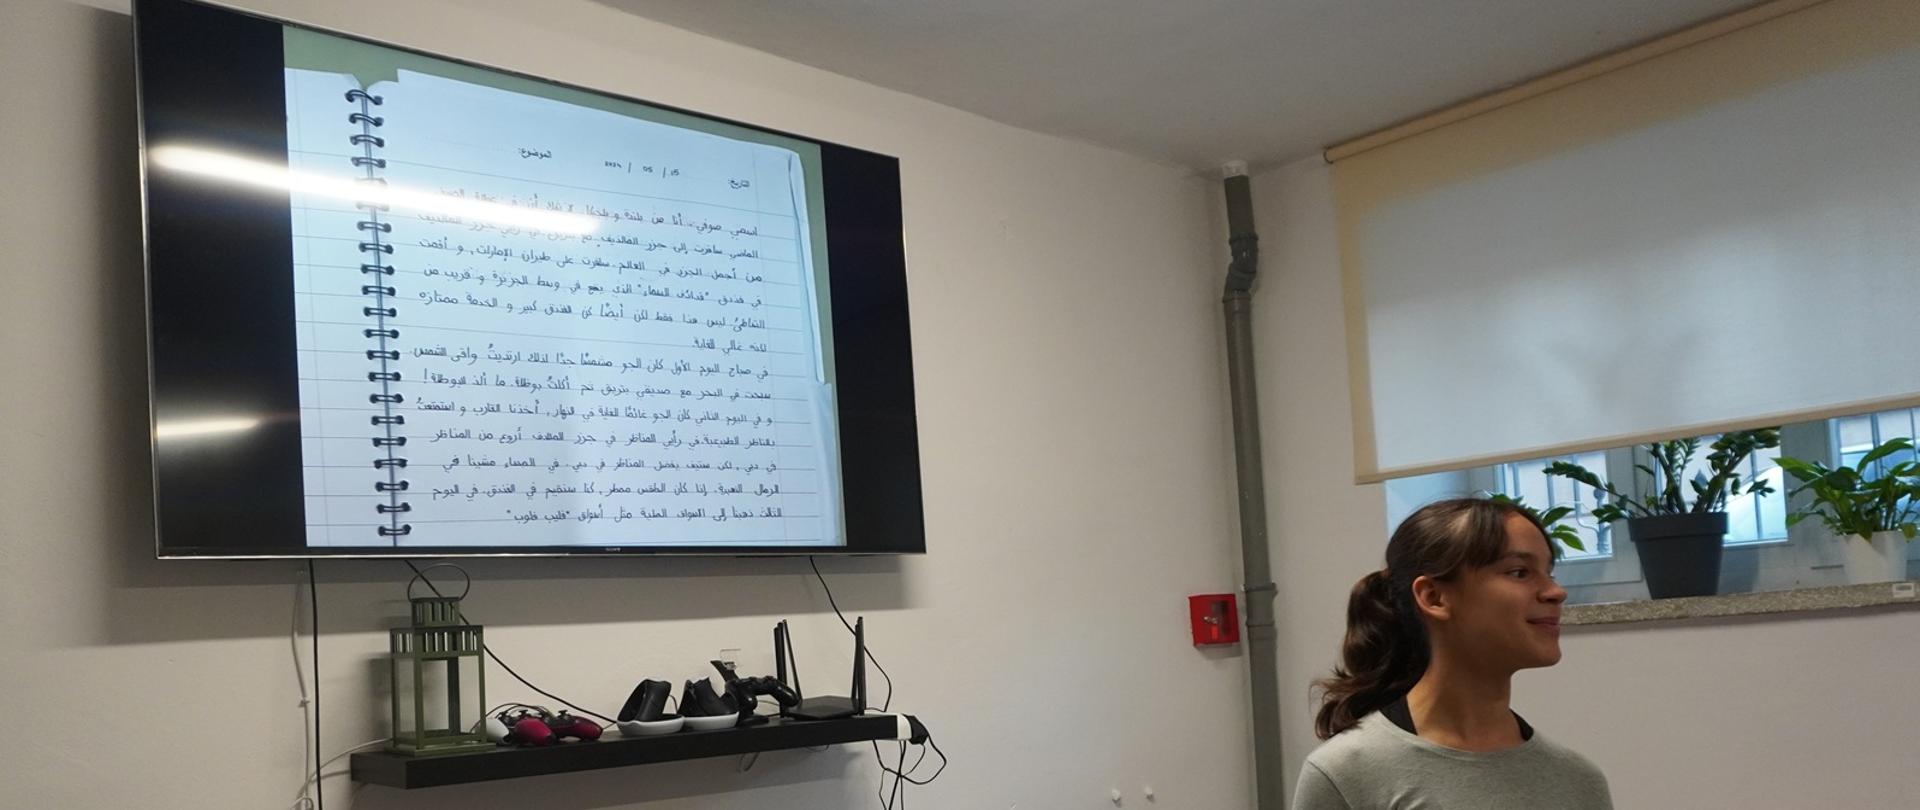 التاريخ: 15 / 05 / 2024 الموضوع:
اسمي صوفي. أنا من بلدة و في عطلة الصيف
الماضي سافرت إلى جزر المالديف مع في رأيي جزر المالديف
من أجمل الجزر في العالم. سافرت على طيران الإمارات, و أقمت
في فندق السماء" الذي يقع في وسط الجزيرة و قريب من
الشاطئ ليس هذا فقط لكن أيضًا كن الفندق كبير و الخدمة ممتازه
لكنه غالي للغاية.
في صباح اليوم الأول كان الجو مشمسًا جدًا لذلك ارتديتُ واقى الشمس.
سبحت في البحر مع صديقي بتريق تم أكلتُ بوظة. ما ألذ البوظة!
و في اليوم الثاني كان الجو غائمًا للغاية في النهار, أخذنا القارب و استمتعتُ
بالمناظر الطبيعية. في رأيي المناظر في جزر أروع من المناظر
في دبي, لكن ستيف يفضل المناظر في دبي. في المساء مشينا في
الرمال الذهبية. إذا كان الطقس ممطر, كنا سنقيم في الفندق. في اليوم
الثالث ذهبنا إلى الأسواق المحلية مثل أسواق "فليب فلوب"
SONY